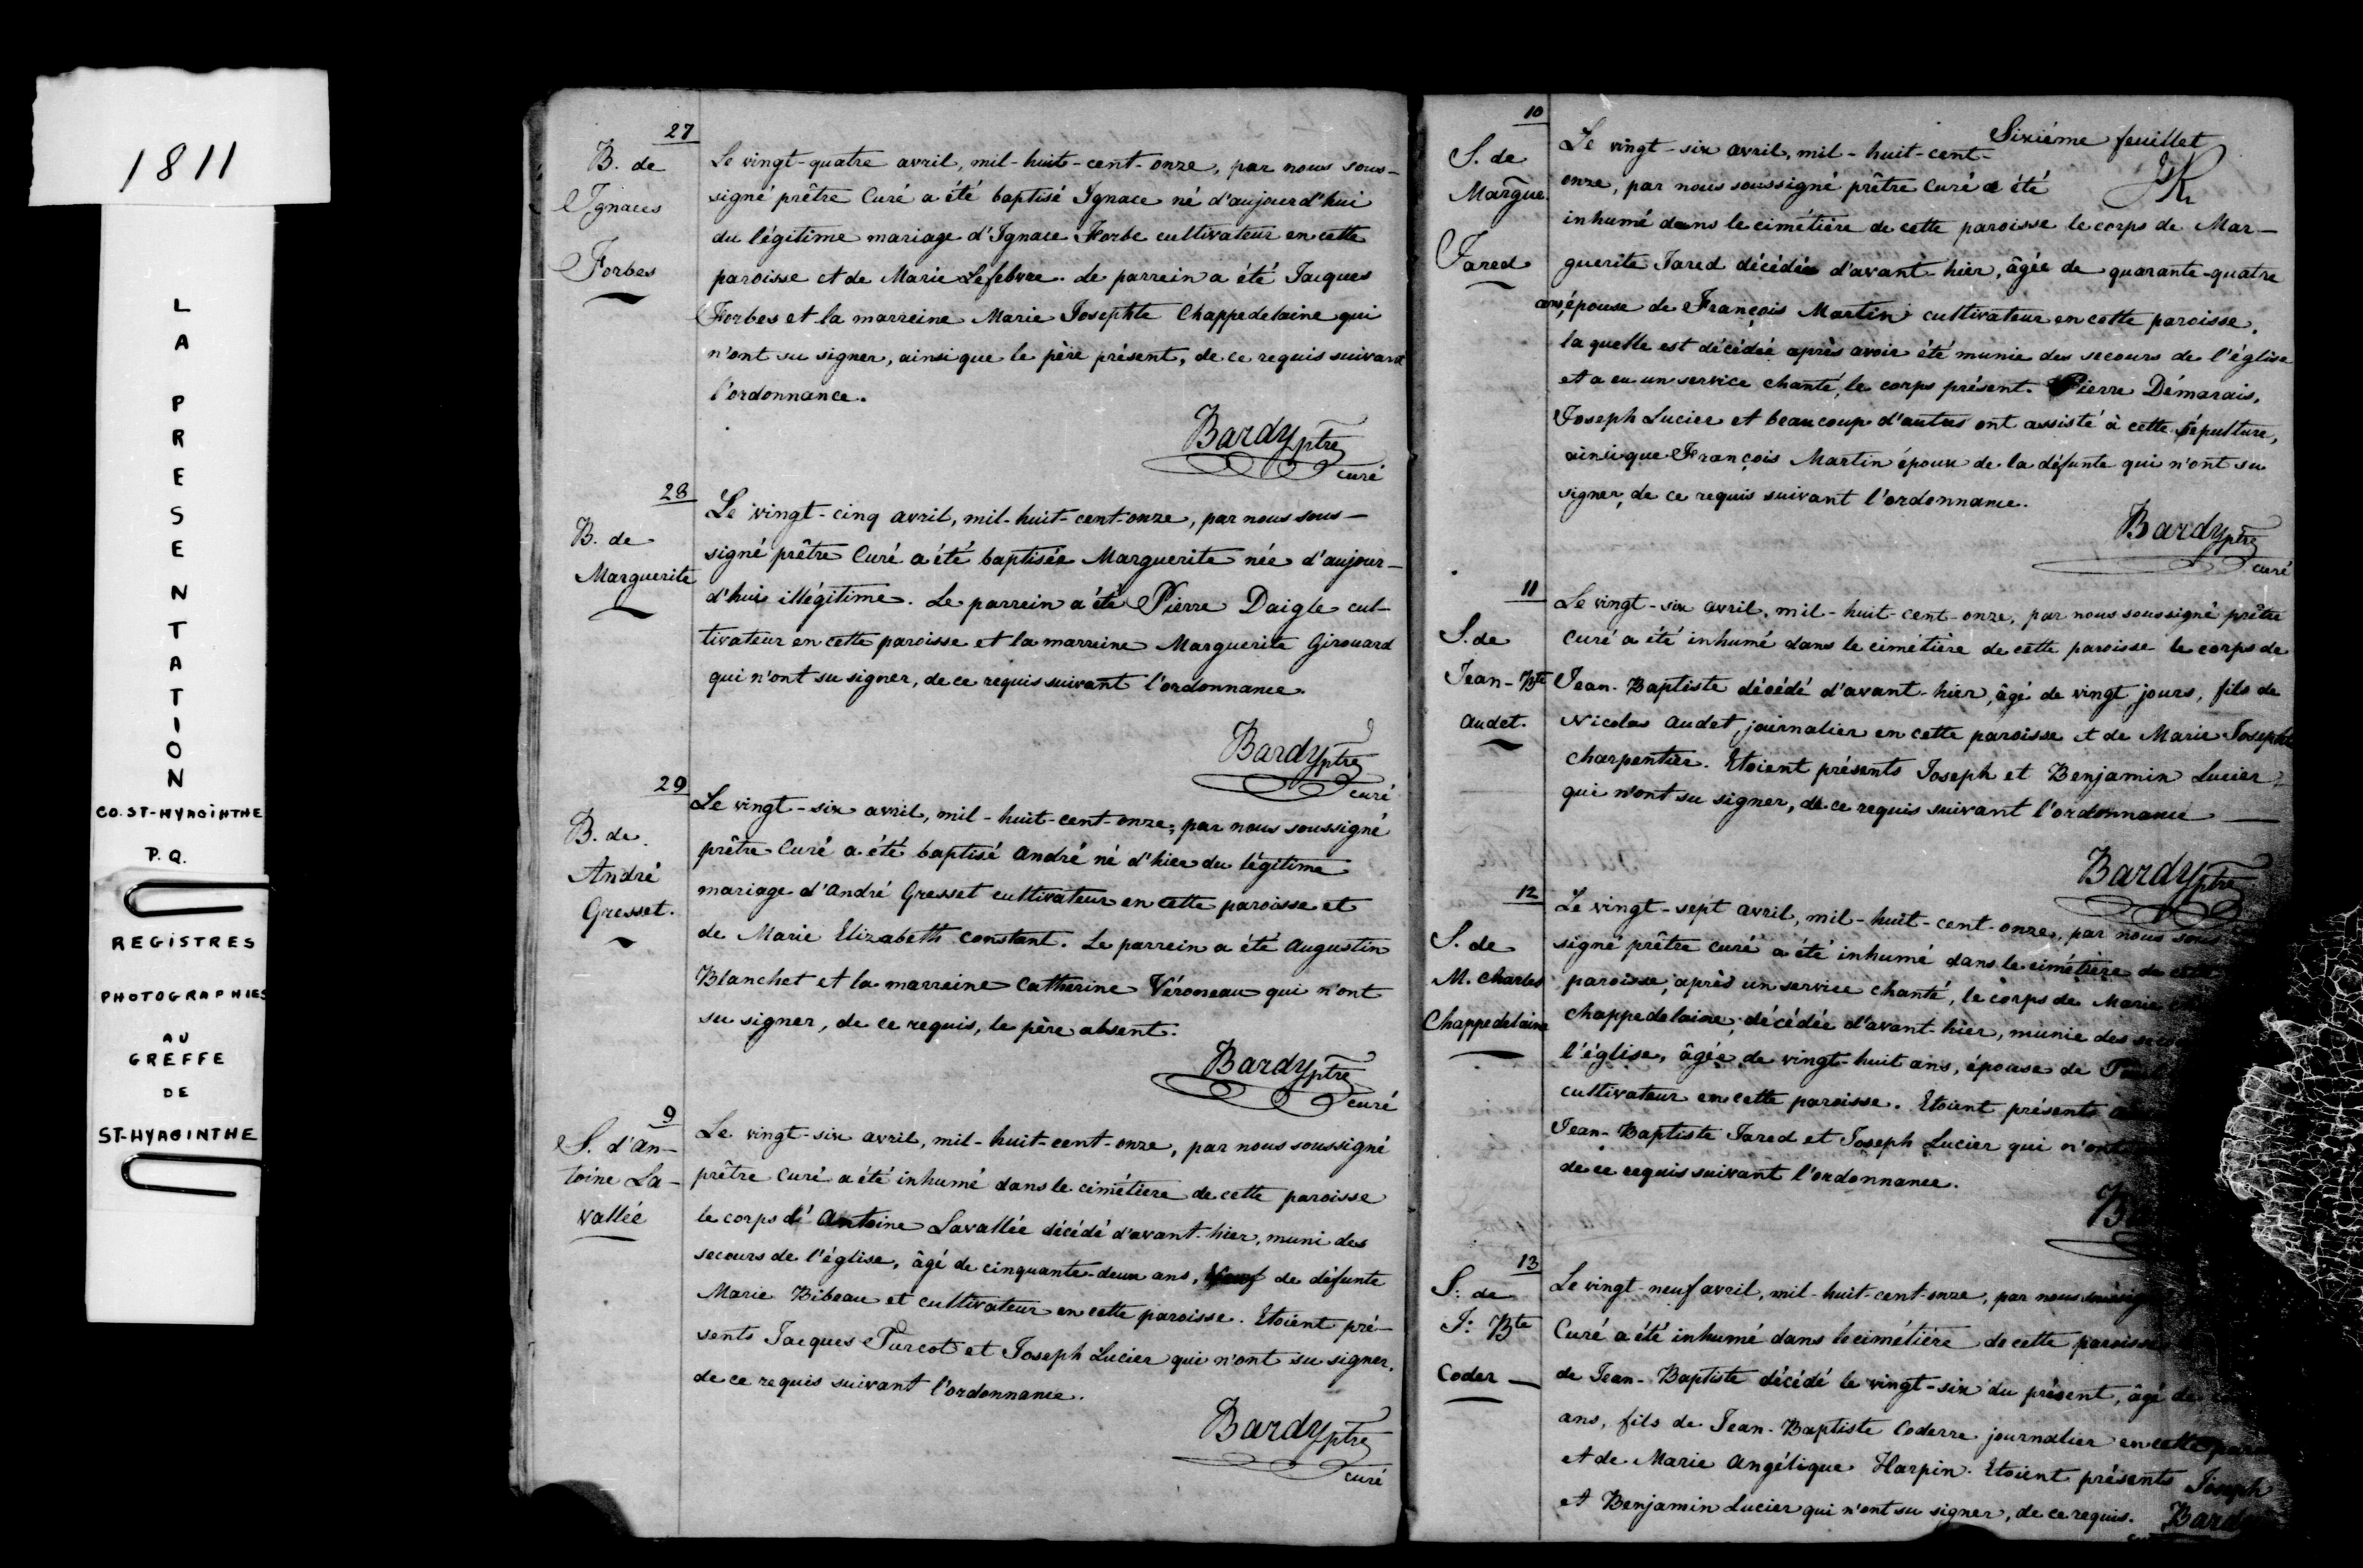 1811
LA PRESENTATION
CO. ST-HYACINTHE
P.Q.
REGISTRES
PHOTOGRAPHIES
AU
GREFFE
DE
ST-HYACINTHE
27
B. de
Ignaces
Forbes
Le vingt-quatre avril, mil-huit-cent-onze, par nous sous-
signé prêtre Curé a été baptisé Ignace né d'aujourd'hui
du légitime mariage d'Ignace Forbe cultivateur en cette
paroisse et de Marie Lefebvre. Le parrein a été Jacques
Forbes et la marreine Marie Josephte Chappedelaine qui
n'ont su signer, ainsi que le père présent, de ce requis suivant
l'ordonnance.
Bardy ptre
curé
28
B. de
Marguerite
Le vingt-cinq avril, mil-huit-cent-onze, par nous sous-
signé prêtre Curé a été baptisée Marguerite née d'aujour-
d'hui illégitime. Le parrein a été Pierre Daigle cul-
tivateur en cette paroisse et la marreine Marguerite Girouard
qui n'ont su signer, de ce requis suivant l'ordonnance.
Bardy ptre
curé
29
B. de
André
Gresset.
Le vingt-six avril, mil-huit-cent-onze, par nous soussigné
prêtre Curé a été baptisé André né d'hier du légitime
mariage d'André Gresset cultivateur en cette paroisse et
de Marie Elizabeth Constant. Le parrein a été Augustin
Blanchet et la marreine Catherine Véroneau qui n'ont
su signer, de ce requis, le père absent.
Bardy ptre
curé
9
S. d'An-
toine La-
vallée
Le vingt-six avril, mil-huit-cent-onze, par nous soussigné
prêtre Curé a été inhumé dans le cimétière de cette paroisse
le corps d'Antoine Lavallée décédé d'avant-hier, muni des
secours de l'église, âgé de cinquante-deux ans, veuf de défunte
Marie Bibeau et cultivateur en cette paroisse. Etoient pré-
sents Jacques Turcot et Joseph Lucier qui n'ont su signer,
de ce requis suivant l'ordonnance.
Bardy ptre
curé
Sixième feuillet
10
S. de
Margue.
Jared
Le vingt-six avril, mil-huit-cent-
onze, par nous soussigné prêtre Curé a été
inhumé dans le cimétière de cette paroisse le corps de Mar-
guerite Jared décédée d'avant-hier, âgée de quarante-quatre
ans, épouse de François Martin cultivateur en cette paroisse,
la quelle est décédée après avoir été munie des secours de l'église
et a eu un service chanté, le corps présent. Pierre Démarais,
Joseph Lucier et beaucoup d'autres ont assisté à cette sépulture,
ainsi que François Martin époux de la défunte qui n'ont su
signer, de ce requis suivant l'ordonnance.
Bardy ptre
curé
11
S. de
Jean-Bte
Audet.
Le vingt-six avril, mil-huit-cent-onze, par nous soussigné prêtre
Curé a été inhumé dans le cimétière de cette paroisse le corps de
Jean-Baptiste décédé d'avant-hier, âgé de vingt jours, fils de
Nicolas Audet, journalier en cette paroisse et de Marie Josephte
Charpentier. Etoient présents Joseph et Benjamin Lucier
qui n'ont su signer, de ce requis suivant l'ordonnance
Bardy ptre
12
S. de
M. Charles
Chappedelaine
Le vingt-sept avril, mil-huit-cent-onze, par nous sous
signé prêtre curé a été inhumé dans le cimétière de cette
paroisse, après un service chanté, le corps de Marie
Chappedelaine, décédée d'avant-hier, munie des
l'église, âgée de vingt-huit ans, épouse de
cultivateur en cette paroisse. Etoient présents
Jean-Baptiste Jared et Joseph Lucier qui n'ont
de ce requis suivant l'ordonnance.
13
S. de
J. Bte
Coder
Le vingt-neuf avril, mil-huit-cent-onze, par nous
Curé a été inhumé dans le cimétière de cette paroisse
de Jean-Baptiste décédé le vingt-six du présent, âgé de
ans, fils de Jean-Baptiste Coderre journalier en cette
et de Marie Angélique Harpin. Etoient présents Joseph
et Benjamin Lucier qui n'ont su signer, de ce requis. Bardy